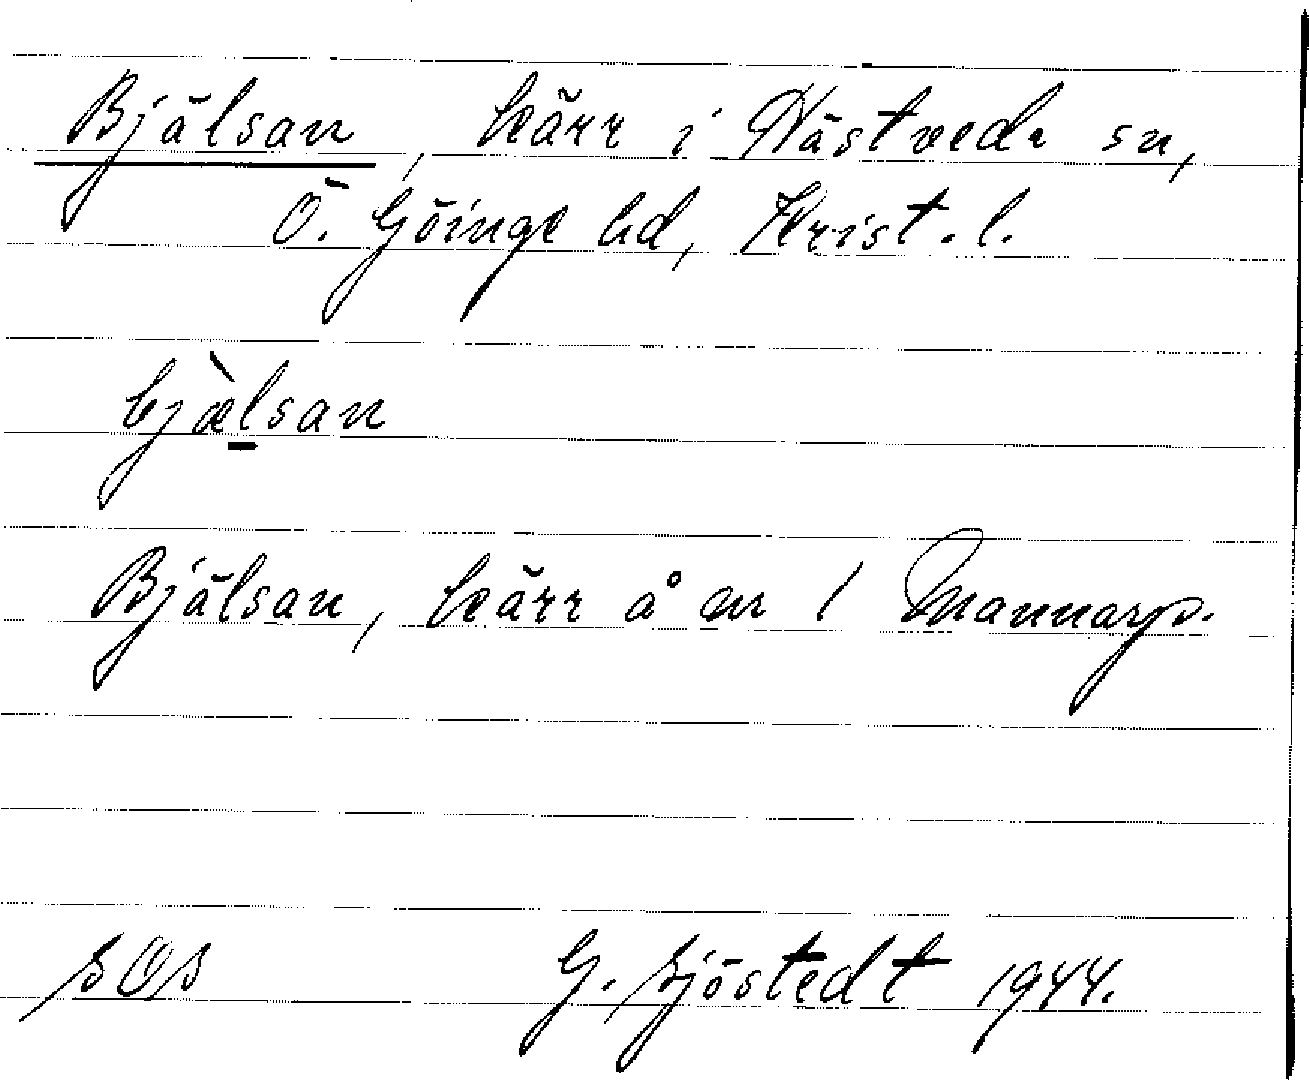 Bjälsan, kärr i Nästveds sn,
Ö. Göinge hd, Krist. l.
bjæ̀lsan
Bjälsan, kärr å nr 1 Mannarp.
SOS G. Sjöstedt 1944.